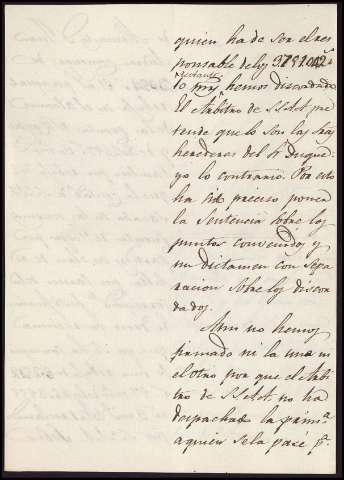 quien ha de ser el res
ponsable de los
restantes
lo mas hemos discordado
El Arbitro de SSAA pre
tende que lo son las
herederas del Sr Duque
yo lo contrario. Por esto
ha sido preciso poner
la Sentencia sobre los
puntos convenidos y
un dictamen con sepa
racion sobre los discor
dados.
Aun no hemos
firmado ni la una ni
el otro por que el Arbi
tro de SSAA. no ha
despachado la prim.ª
a quien se la pase p.ª